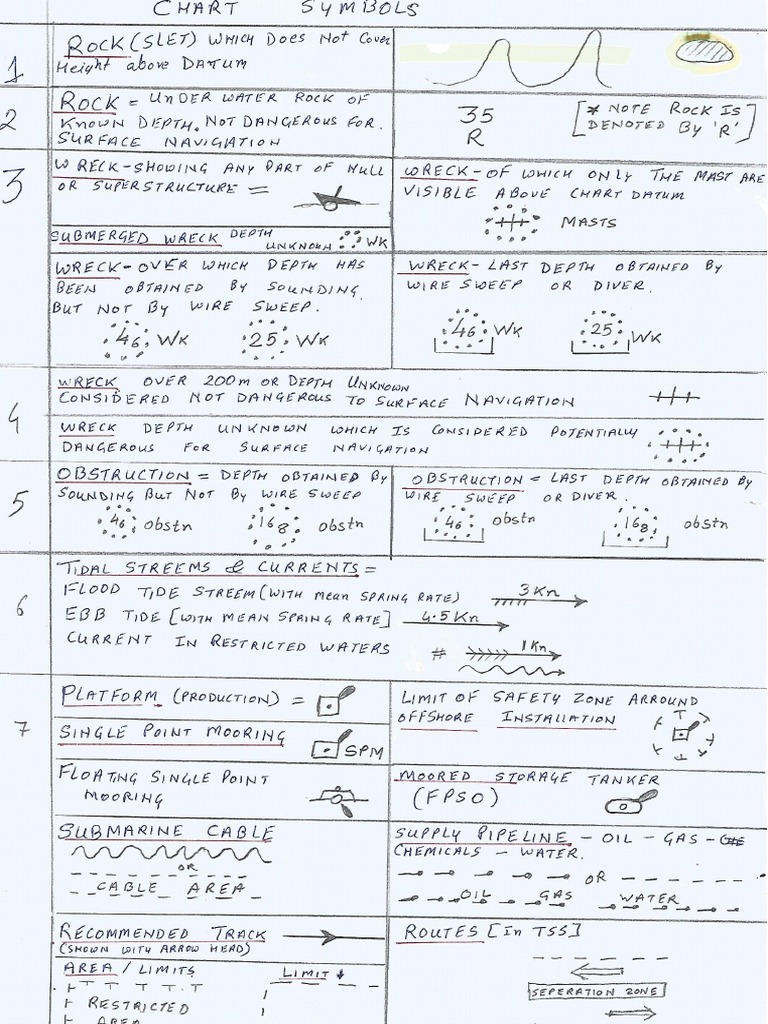 CHART SYMBOLS
1
ROCK (SLET) WHICH DOES NOT COVER
Height above DATUM
2
ROCK = UNDER WATER ROCK OF
KNOWN DEPTH. NOT DANGEROUS FOR.
SURFACE NAVIGATION
35
R
[* NOTE ROCK IS
DENOTED BY 'R']
3
WRECK-SHOWING ANY PART OF HULL
OR SUPERSTRUCTURE =
WRECK-OF WHICH ONLY THE MAST ARE
VISIBLE ABOVE CHART DATUM
MASTS
SUBMERGED WRECK DEPTH
UNKNOWN WK
WRECK-OVER WHICH DEPTH HAS
BEEN OBTAINED BY SOUNDING
BUT NOT BY WIRE SWEEP.
46 WK 25 WK
WRECK- LAST DEPTH OBTAINED BY
WIRE SWEEP OR DIVER.
46 WK 25 WK
4
WRECK OVER 200m OR DEPTH UNKNOWN
CONSIDERED NOT DANGEROUS TO SURFACE NAVIGATION
WRECK DEPTH UNKNOWN WHICH IS CONSIDERED POTENTIALLY
DANGEROUS FOR SURFACE NAVIGATION
5
OBSTRUCTION = DEPTH OBTAINED BY
SOUNDING BUT NOT BY WIRE SWEEP
46 obstn 168 obstn
OBSTRUCTION = LAST DEPTH OBTAINED BY
WIRE SWEEP OR DIVER.
46 obstn 168 obstn
6
TIDAL STREEMS & CURRENTS =
FLOOD TIDE STREEM (WITH mean SPRING RATE) 3Kn
EBB TIDE [WITH MEAN SPRING RATE] 4.5Kn
CURRENT IN RESTRICTED WATERS # 1Kn
7
PLATFORM (PRODUCTION) =
LIMIT OF SAFETY ZONE ARROUND
OFFSHORE INSTALLATION
SINGLE POINT MOORING
SPM
FLOATING SINGLE POINT
MOORING
MOORED STORAGE TANKER
(FPSO)
SUBMARINE CABLE
OR
CABLE AREA
SUPPLY PIPELINE - OIL - GAS -
CHEMICALS - WATER.
OR
OIL GAS WATER
RECOMMENDED TRACK
(SHOWN WITH ARROW HEAD)
ROUTES [In TSS]
SEPERATION ZONE
AREA / LIMITS
LIMIT
RESTRICTED
AREA